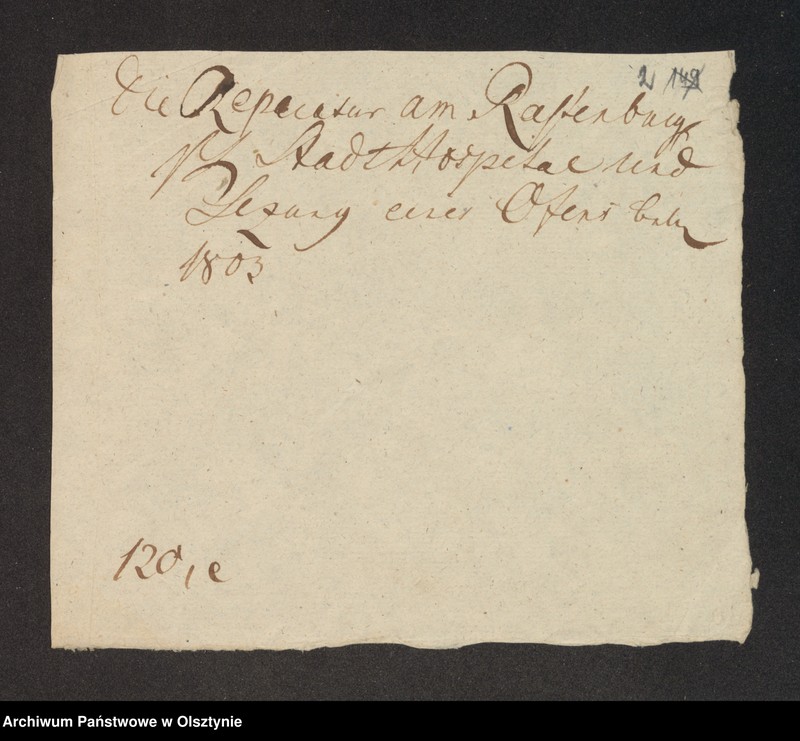 2 149
Die Reperatur am Rastenburg
schen StadtHospital und
Sezung eines Ofens betr
1803
120, c
Archiwum Państwowe w Olsztynie